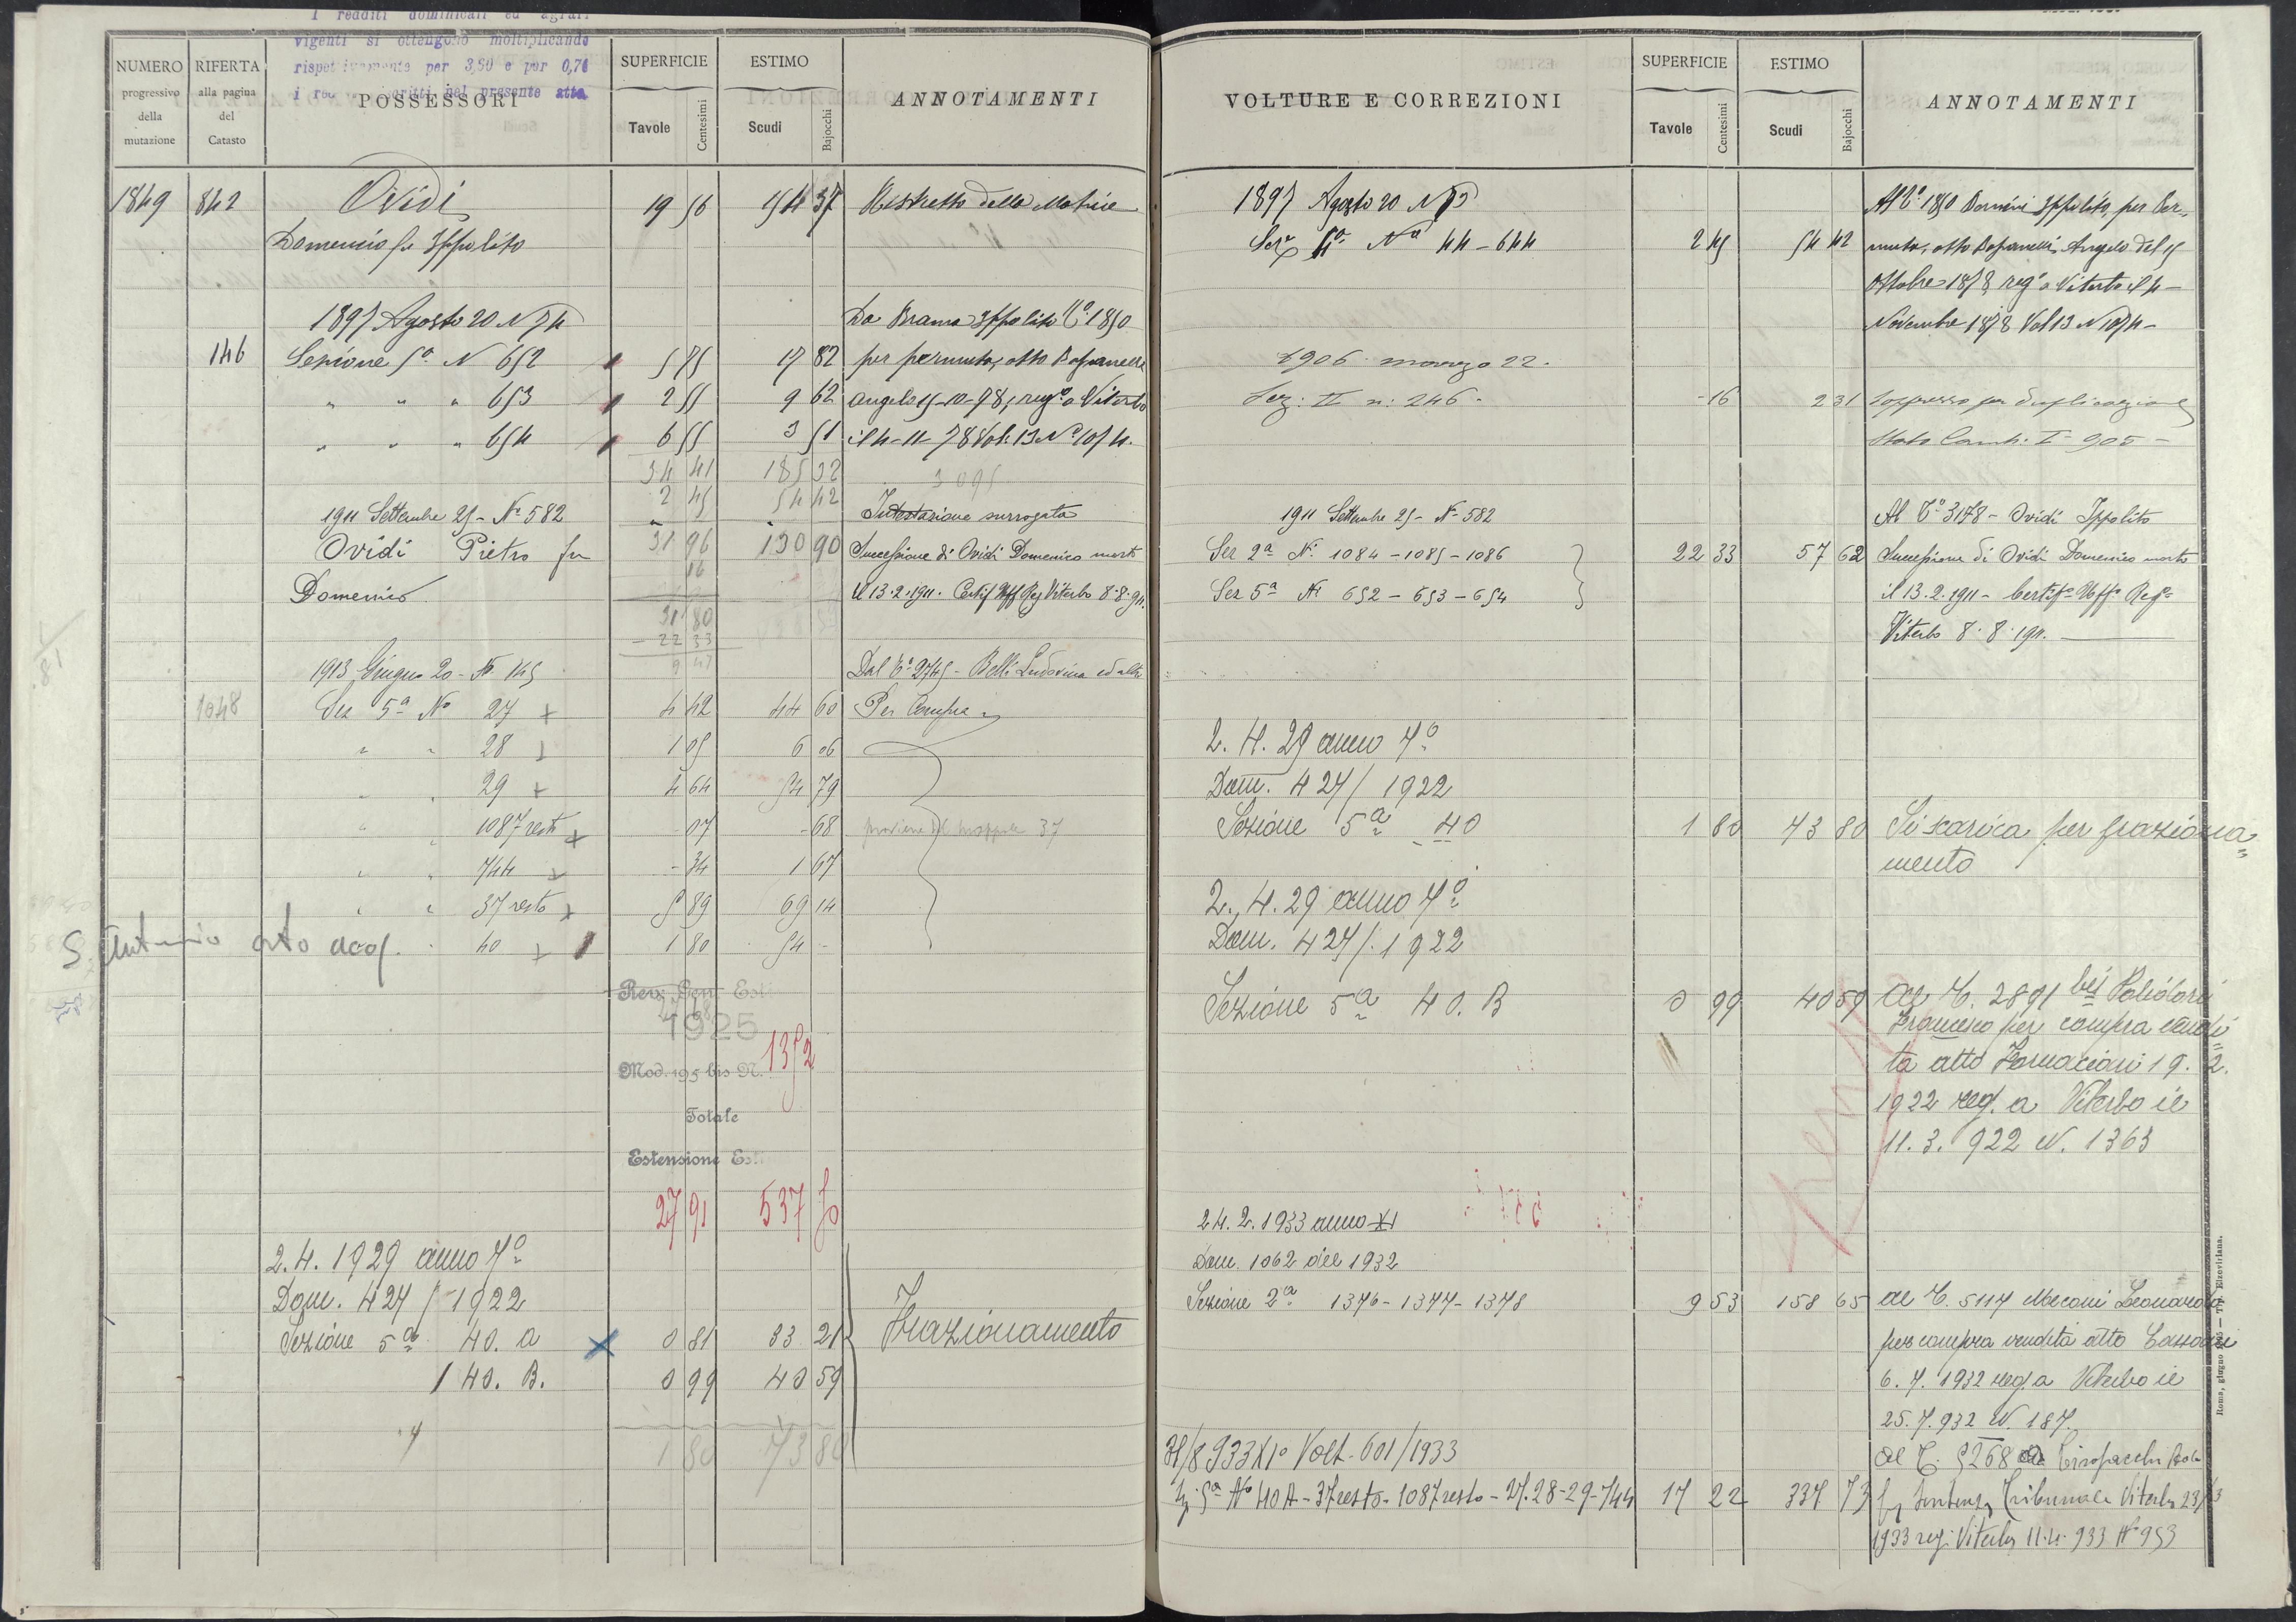 I redditi dominicali ed agrari
vigenti si ottengono moltiplicando
rispettivamente per 3,50 e per 0,76
i red iscritti nel presente atto
NUMERO progressivo della mutazione
RIFERTA alla pagina del Catasto
POSSESSORI
SUPERFICIE Tavole Centesimi
ESTIMO Scudi Bajocchi
ANNOTAMENTI
1849 842 Ovidi 19 56 154 37 Ristretto della Matrice
Domenico fu Ippolito
1897 Agosto 20 N 74 Da Ippolito 1850
146 Sezione 5a N 652 5 75 17 82 per permuta, atto
" " " 653 2 55 9 62 Angelo 15-10-78, rego a Viterbo
" " " 654 6 55 3 51 il 4-11-78 Vol. 13 No 1074.
34 41 185 32
2 45 54 42 3095
1911 Settembre 25 - No 582 Intestazione surrogata
Ovidi Pietro fu 31 96 130 90 Successione di Ovidi Domenico morto
Domenico 16 il 13.2.1911. Certif Uff Reg Viterbo 8.8.911.
31 80
- 22 33
9 47
1913 Giugno 20 - No 145 Dal Co 2745 - Belli Ludovica ed altri
1048 Sez 5a No 27 + 4 42 44 60 Per Compra
" " 28 1 05 6 06
" " 29 + 4 64 54 79
" " 1087 resto + - 07 - 68 proviene dal mappale 37
" " 744 - 34 1 67
" " 37 resto 5 89 69 14
S. Antonio orto acq. " 40 1 80 54 -
Rev. Gen. Esti
1925
Mod. 195 bis N. 1352
Totale
Estensione Est
27 91 537 50
2.4.1929 anno 7o
Dom. 427/1922
Sezione 5a 40. a X 0 81 33 21 Frazionamento
140. B. 0 99 40 59
1 80 73 80
VOLTURE E CORREZIONI
SUPERFICIE Tavole Centesimi
ESTIMO Scudi Bajocchi
ANNOTAMENTI
1897 Agosto 20 N 73 Al Co 1850 Ippolito, per Per-
Sez 4a No 44-644 2 45 54 42 muta, atto Angelo del 15
Ottobre 1878 rego a Viterbo il 4
Novembre 1878 Vol 13 N 1074-
1906 marzo 22.
Sez: II n: 246. - 16 2 31 Soppresso per duplicazione
Stato Camb. I 905 -
1911 Settembre 25 - No 582 Al Co 3178 - Ovidi Ippolito
Sez 2a No 1084-1085-1086 22 33 57 62 Successione di Ovidi Domenico morto
Sez 5a No 652-653-654 il 13.2.1911 - Certifo Uffo Rego
Viterbo 8.8.1911.
2.4.29 anno 7o
Dom. 427/1922
Sezione 5a 40 1 80 73 80 Si scarica per fraziona=
mento
2.4.29 anno 7o
Dom. 427/.1922
Sezione 5a 40. B 0 99 40 59 al C. 2891 bis Polidori
Francesco per compra vendi=
ta atto Fornaciari 19.2.
1922 reg. a Viterbo il
11.3.922 N. 1363
24.2.1933 anno XI
Dom. 1062 del 1932
Sezione 2a 1376-1377-1378 9 53 158 65 al C. 5117 Meconi Leonardo
per compra vendita atto
6.7.1932 reg. a Viterbo il
25.7.932 N. 187.
31/8 933 XIo Volt. 601/1933 al C. 5268
Sez. 5a No 40A-37 resto-1087 resto-27.28-29-744 17 22 337 73 Sentenza Tribunale Viterbo
1933 reg. Viterbo 11.4.933 No 953
Roma, giugno - Tip. Elzeviriana.